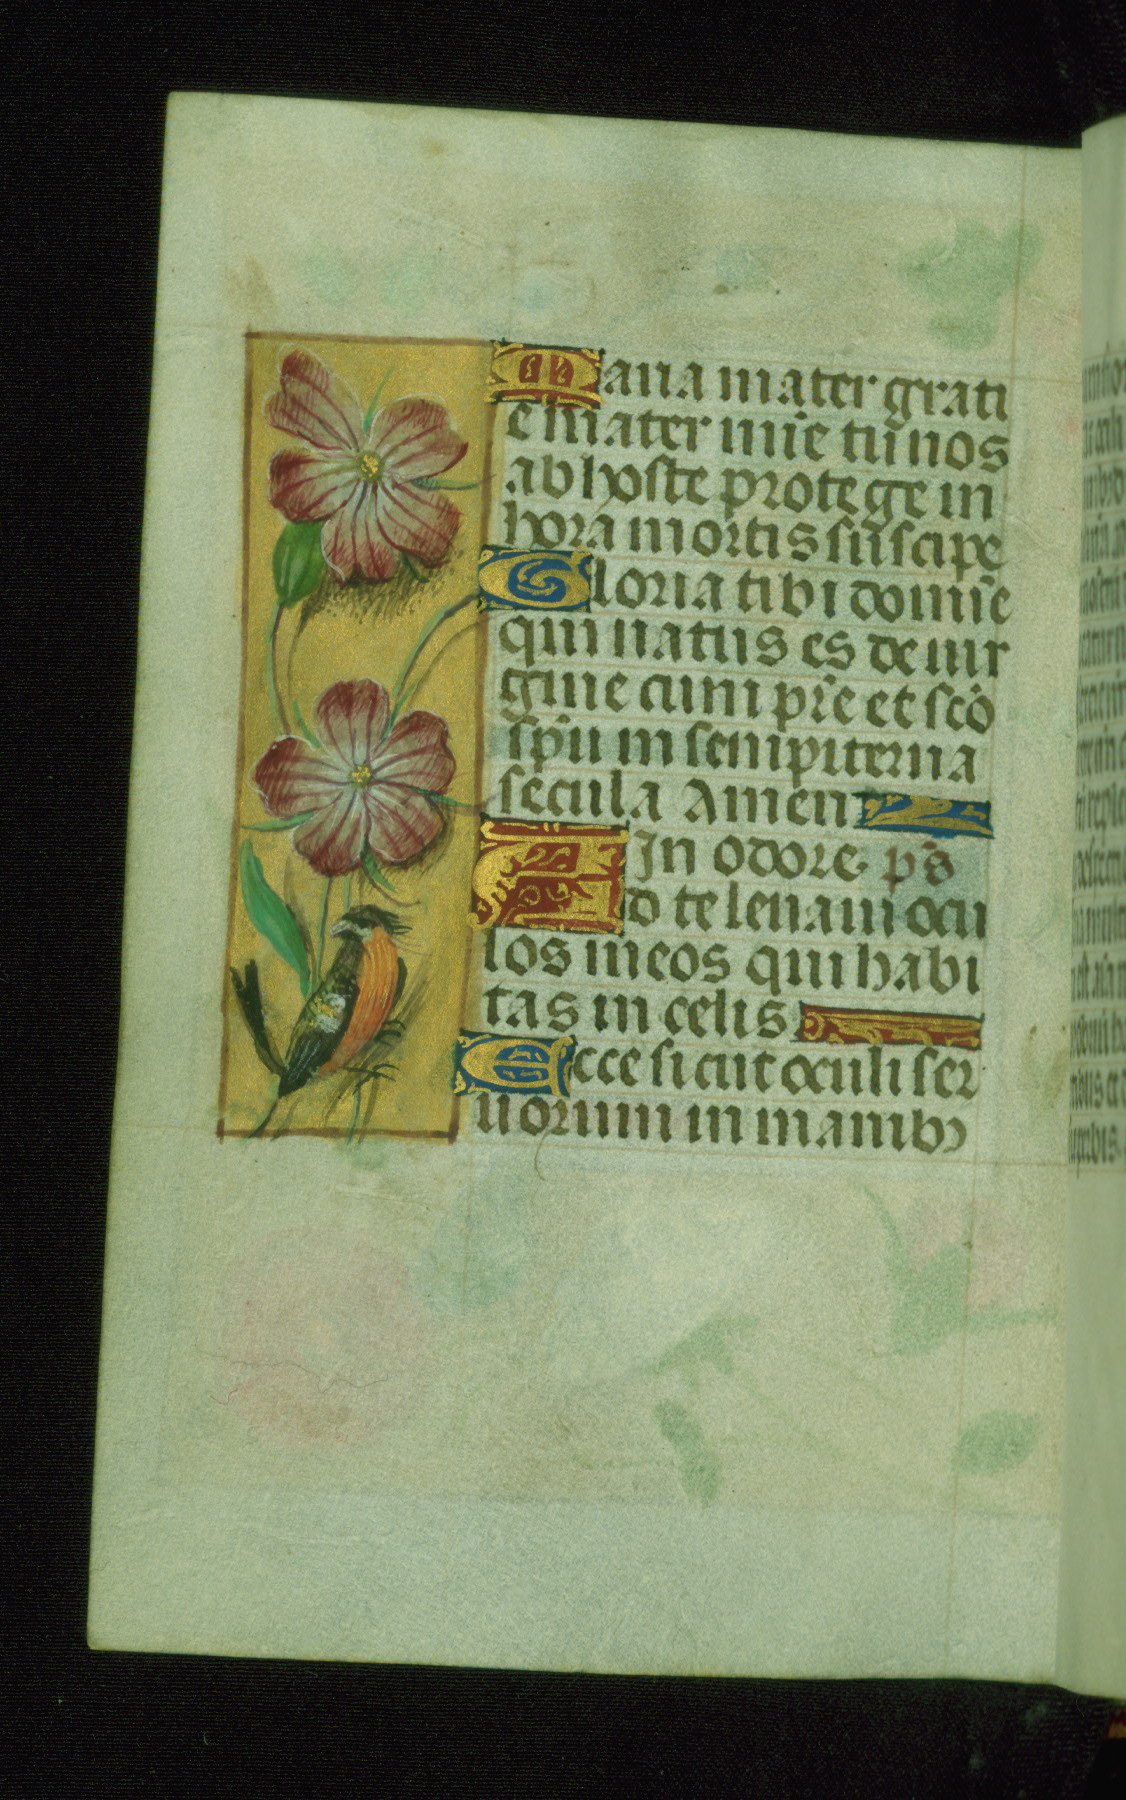 Maria mater grati
e mater mīe tu nos
ab hoste protege in
hora mortis suscipe
Gloria tibi domīe
qui natus es de uir
gine cum pr̄e et scō
sp̄u in sempiterna
secula Amen
In odore. pš
Ad te leuaui ocu
los meos qui habi
tas in celis
Ecce sicut oculi ser
uorum in manibꝫ